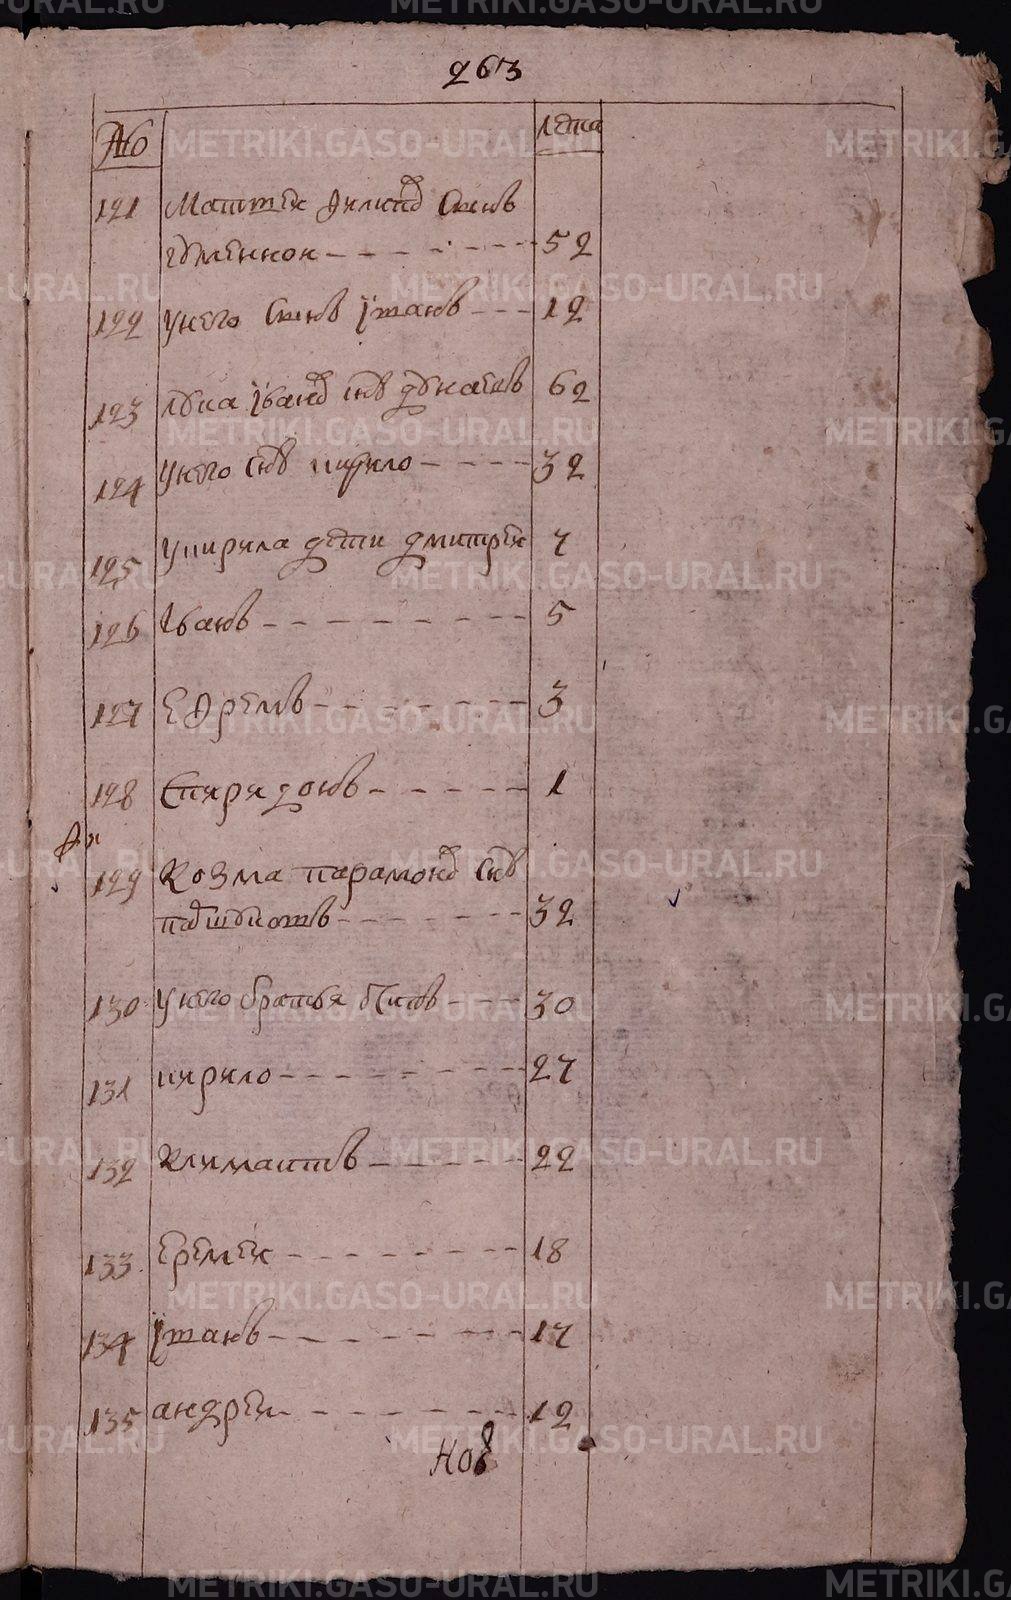 263
№ лета
121 Матѳеи Филипов Сынъ
Гуменнои 52
122 У него Сынъ Ѵпатъ 12
123 лука Ѵванов снъ дунаевъ 62
124 У него снъ кирило 32
125 У кирила дети дмитреи 7
126 Иванъ 5
127 Ефремъ 3
128 Спиридонъ 1
129 Козма парамонов снъ
32
130 У него братья 30
131 кирило 27
132 Климантъ 22
133 еремеи 18
134 17
135 андреи 12
METRIKI.GASO-URAL.RU